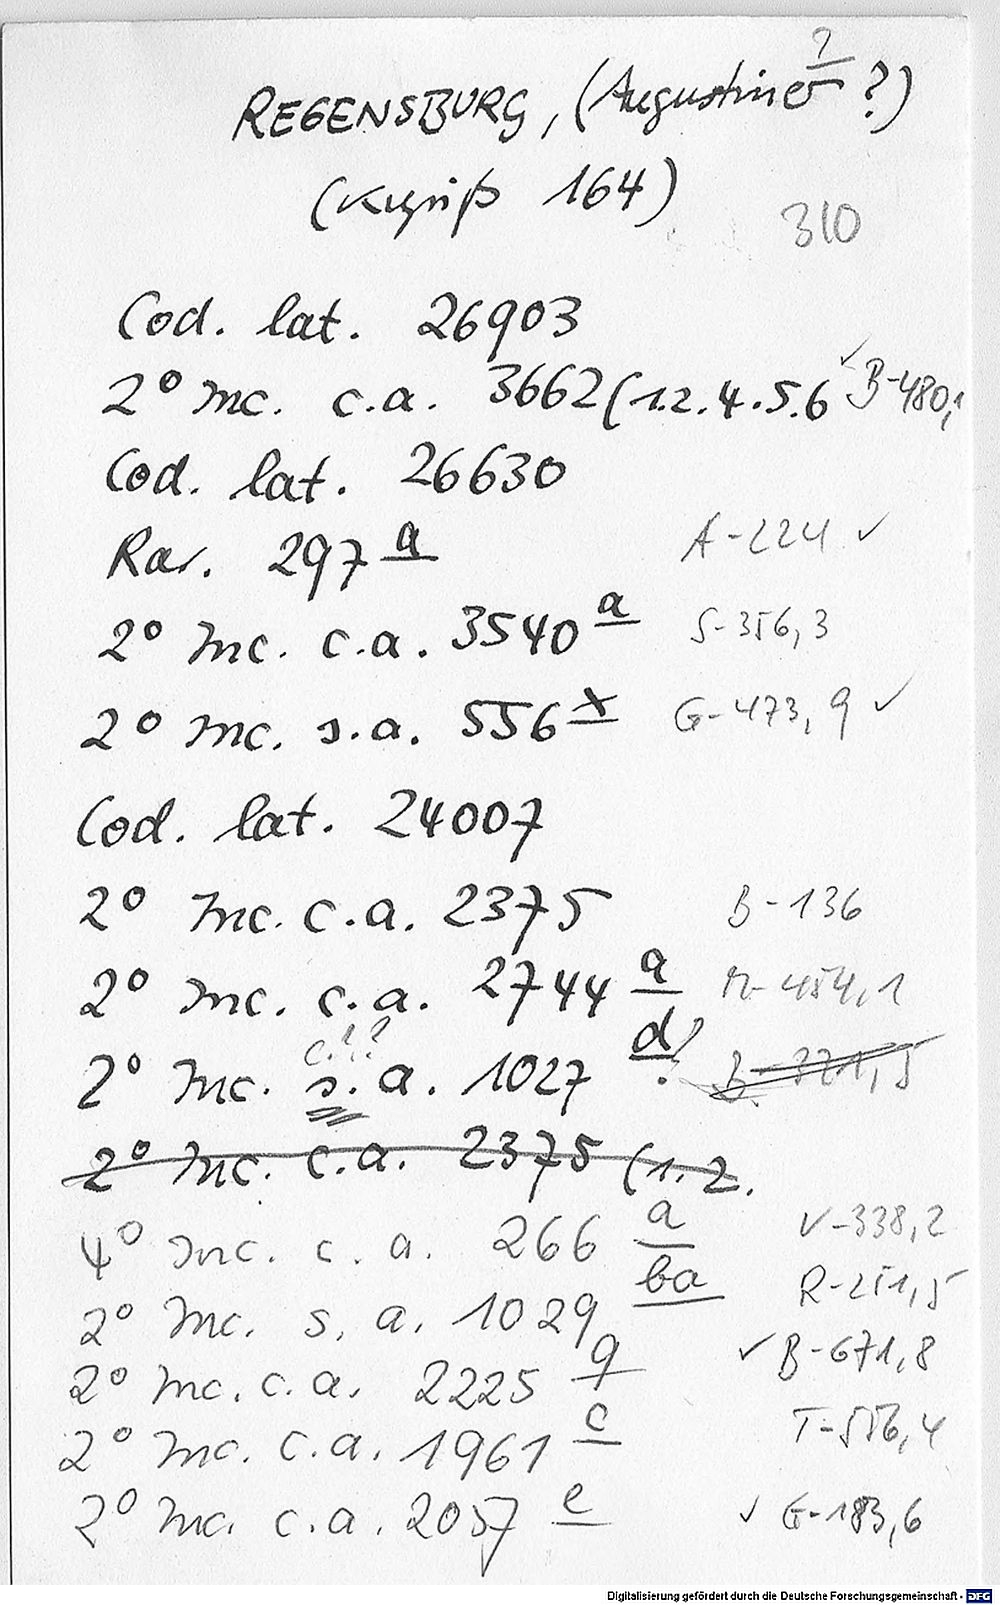 REGENSBURG, (Augustiner ?)
?
(Kyriß 164)
310
Cod. lat. 26903
2° Inc. c.a. 3662 (1.2.4.5.6 ✓ B-480,1
Cod. lat. 26630
Rar. 297 a A-224 ✓
2° Inc. c.a. 3540 a S-356,3
2° Inc. s.a. 556 x G-473,9 ✓
Cod. lat. 24007
2° Inc. c.a. 2375 B-136
2° Inc. c.a. 2744 a M-454,1
c.!?
2° Inc. s.a. 1027 d? B-321,5
2° Inc. c.a. 2375 (1.2.
4° Inc. c.a. 266 a V-338,2
2° Inc. s.a. 1029 ba R-251,5
2° Inc. c.a. 2225 q ✓ B-671,8
2° Inc. c.a. 1961 c T-556,4
2° Inc. c.a. 2057 e ✓ G-183,6
Digitalisierung gefördert durch die Deutsche Forschungsgemeinschaft - DFG